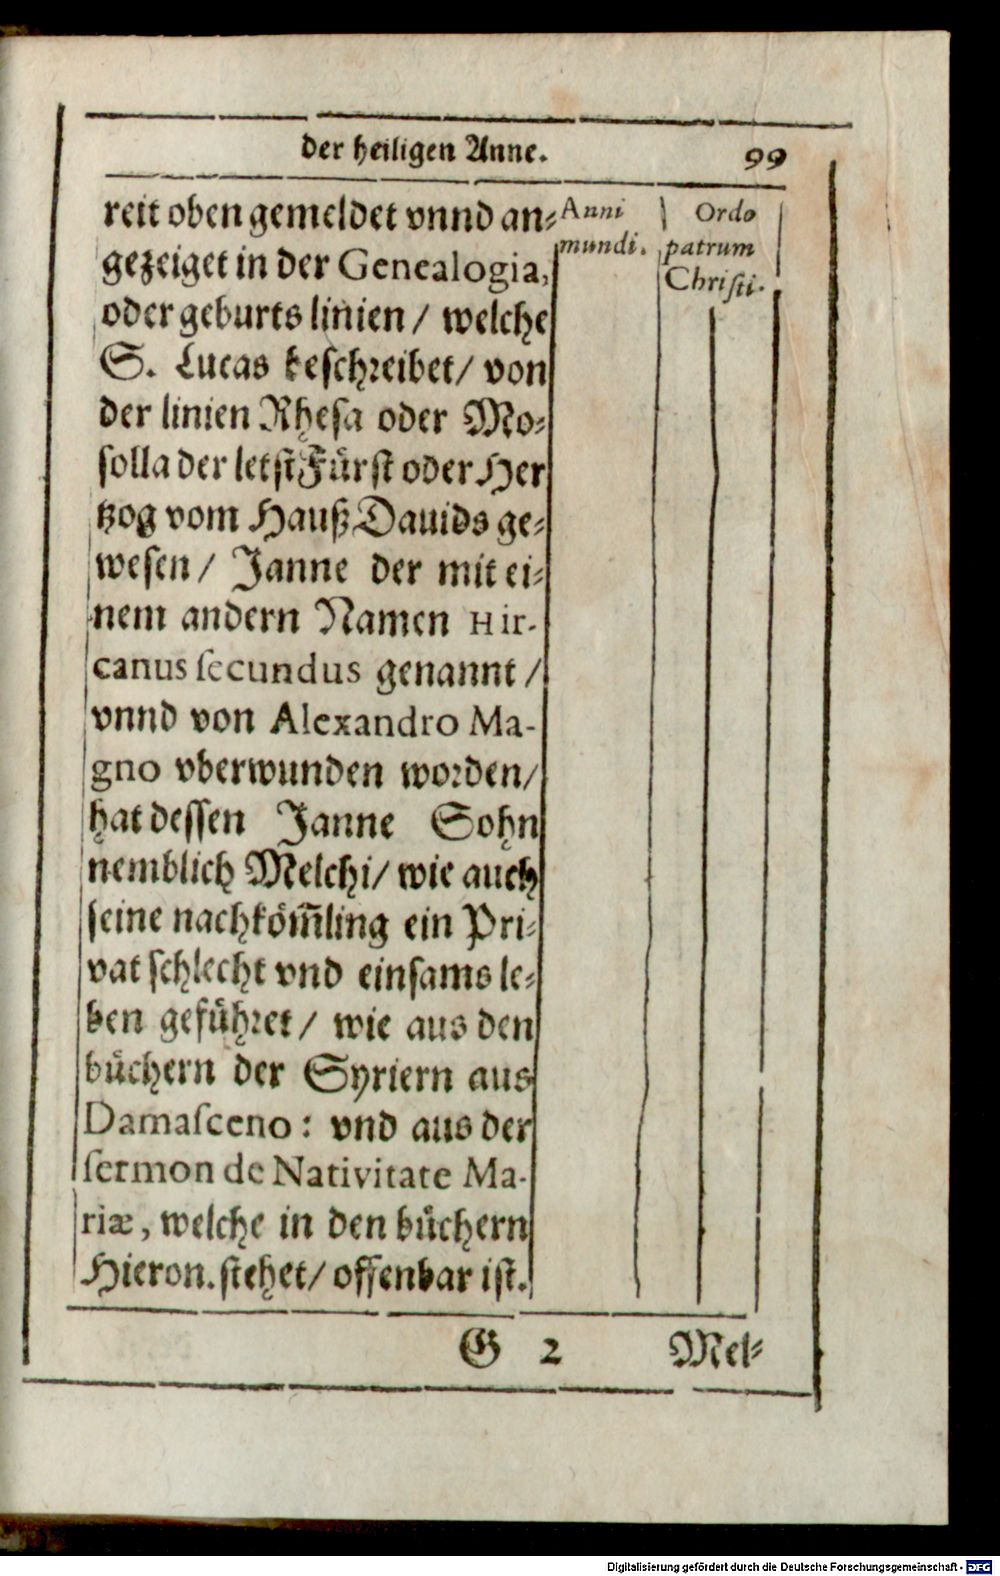 der heiligen Anne. 99
reit oben gemeldet vnnd an⸗
gezeiget in der Genealogia,
oder geburts linien / welche
S. Lucas beschreibet / von
der linien Rhesa oder Mo⸗
solla der letst Fürst oder Her
tzog vom Hauß Dauids ge⸗
wesen / Janne der mit ei⸗
nem andern Namen Hir-
canus secundus genannt /
vnnd von Alexandro Ma-
gno vberwunden worden /
hat dessen Janne Sohn
nemblich Melchi / wie auch
seine nachköm̃ling ein Pri⸗
vat schlecht vnd einsams le⸗
ben geführet / wie aus den
büchern der Syriern aus
Damasceno: vnd aus der
sermon de Nativitate Ma-
riæ, welche in den büchern
Hieron. stehet / offenbar ist.
Anni
mundi.
Ordo
patrum
Christi.
G 2 Mel⸗
Digitalisierung gefördert durch die Deutsche Forschungsgemeinschaft - DFG